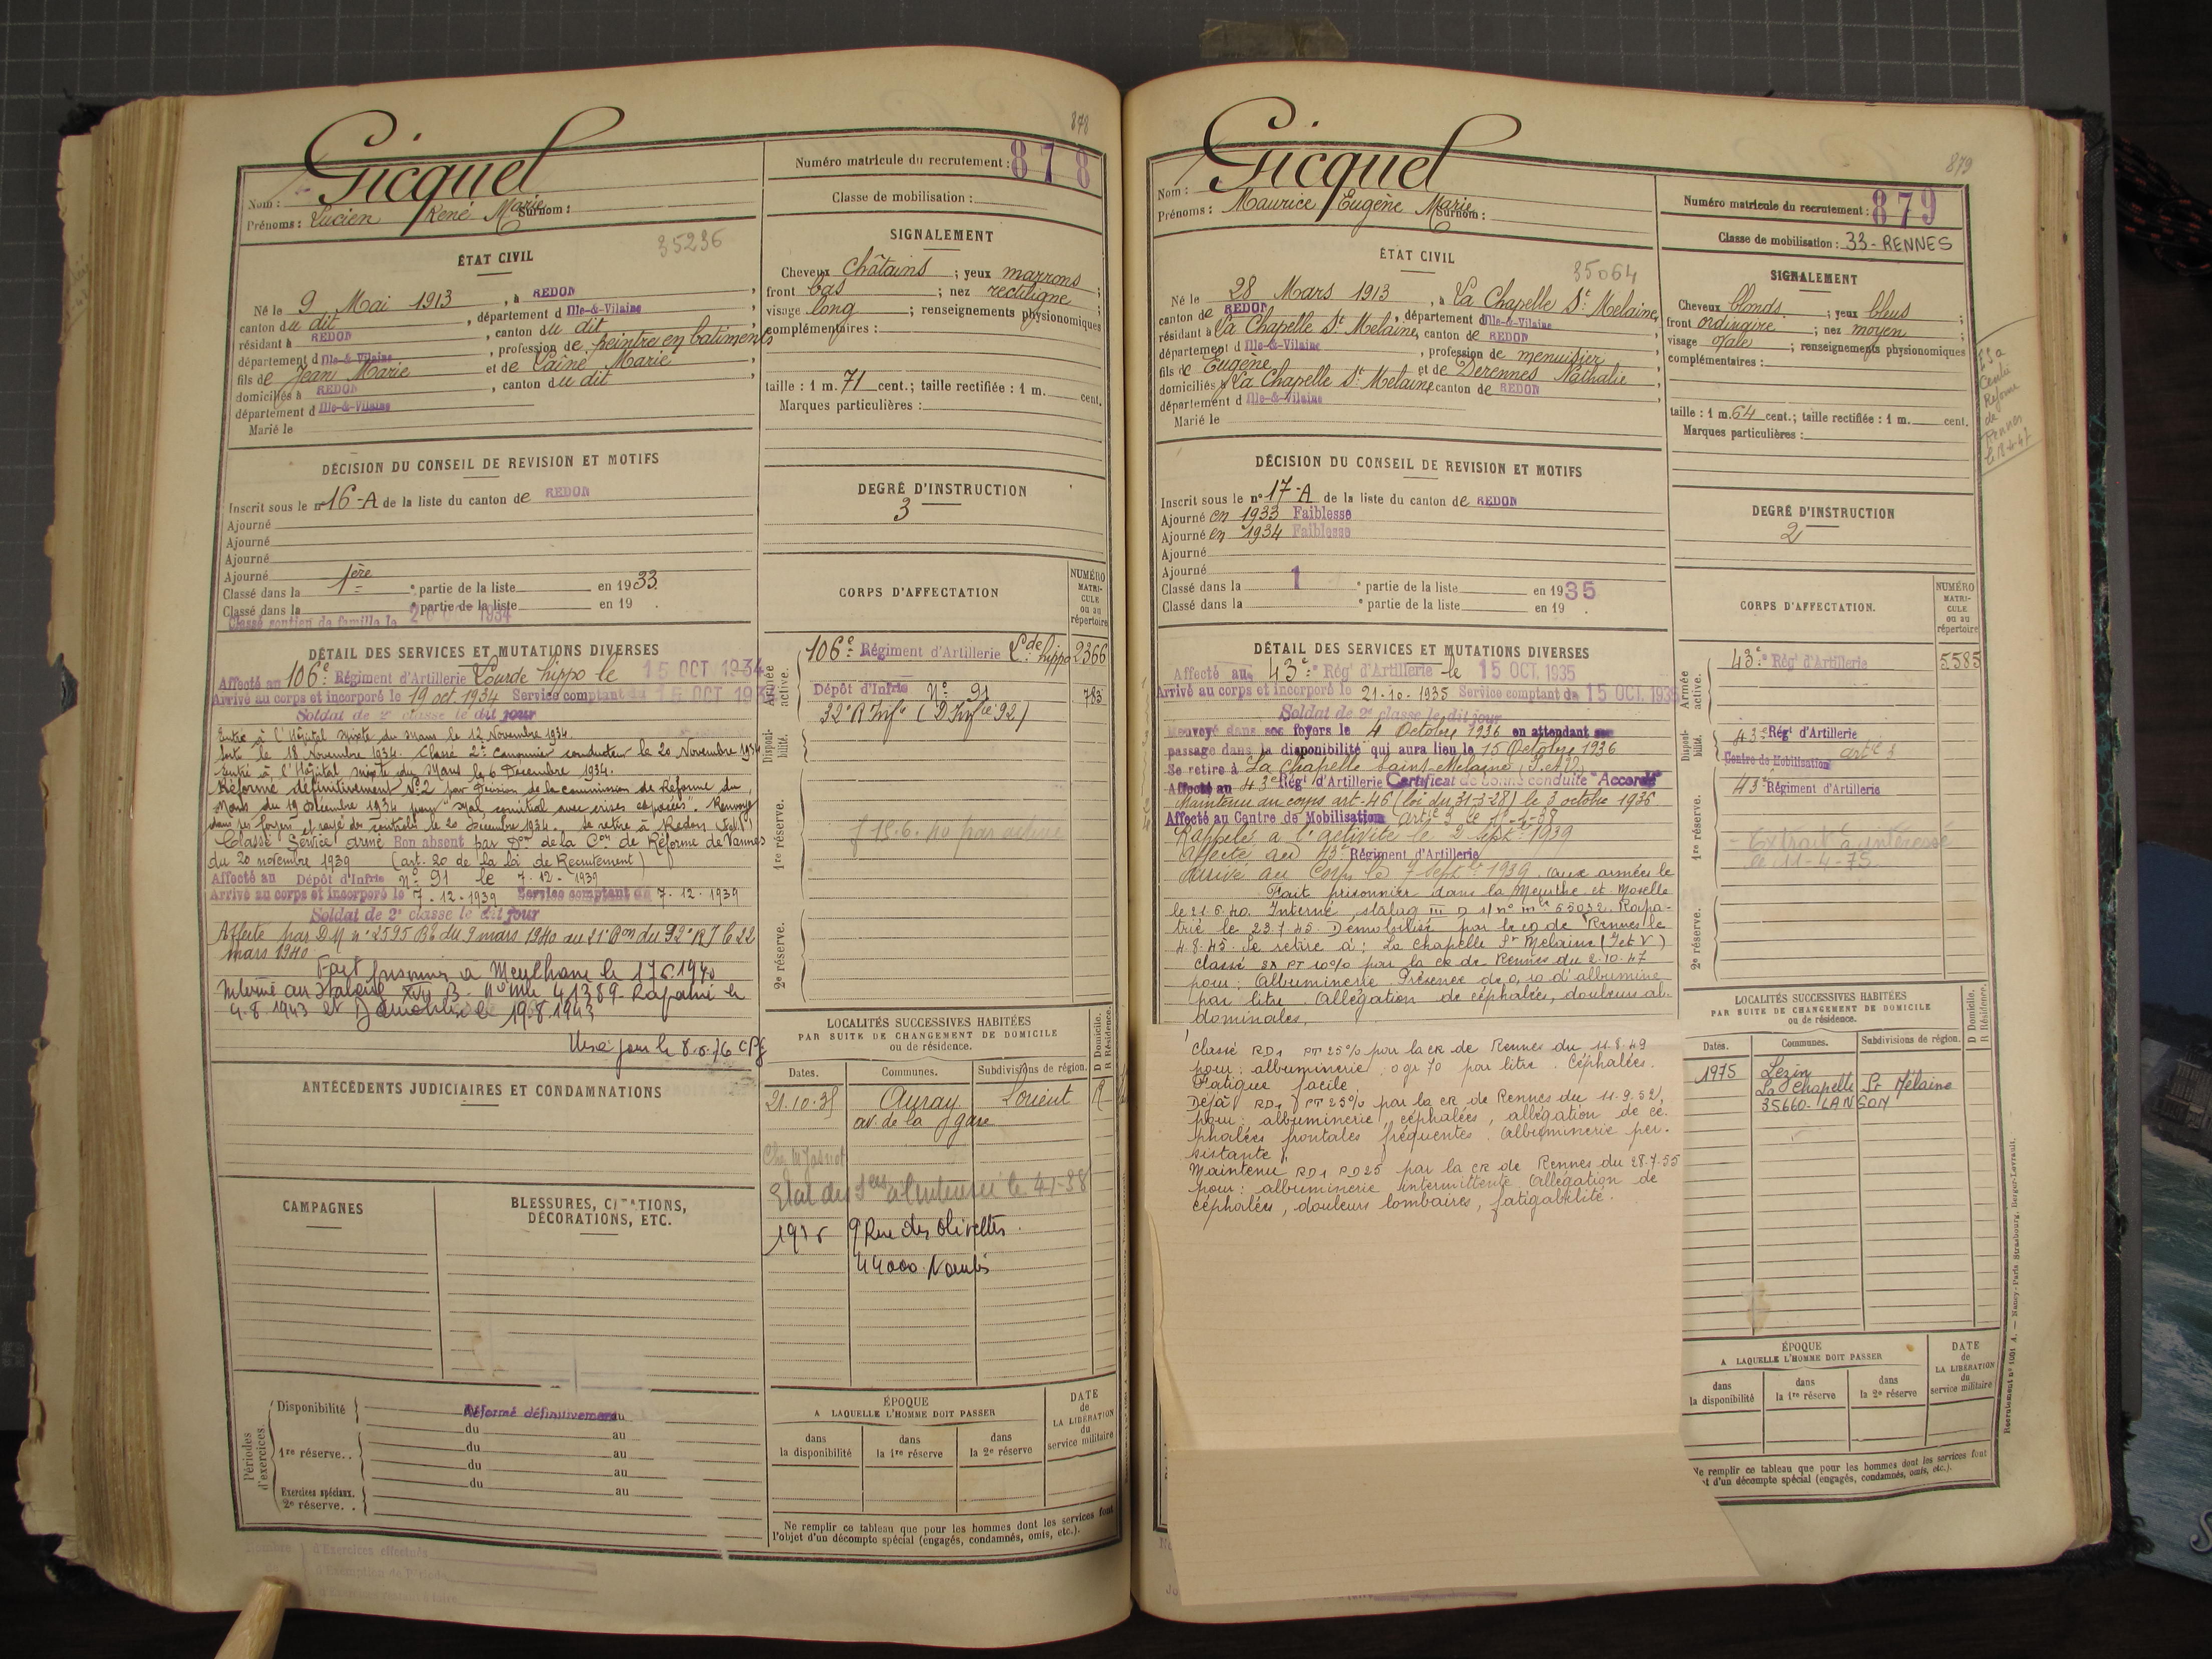 878
Gicquel
Nom :
Prénoms : Lucien René Marie Surnom :
Numéro matricule du recrutement : 878
Classe de mobilisation :
35236
ÉTAT CIVIL
Né le 9 Mai 1913, à REDON,
canton du dit, département d Ille-&-Vilaine
résidant à REDON, canton du dit,
département d Ille-&-Vilaine, profession de peintre en batiments
fils de Jean Marie et de Lainé Marie,
domiciliés à REDON, canton du dit,
département d Ille-&-Vilaine
Marié le
SIGNALEMENT
Cheveux châtains ; yeux marrons ;
front bas ; nez rectiligne ;
visage long ; renseignements physionomiques
complémentaires :
taille : 1 m. 71 cent.; taille rectifiée : 1 m. cent.
Marques particulières :
DÉCISION DU CONSEIL DE REVISION ET MOTIFS
Inscrit sous le n° 16-A de la liste du canton de REDON
Ajourné
Ajourné
Ajourné
Ajourné
Classé dans la 1ère partie de la liste en 1933.
Classé dans la e partie de la liste en 19 .
Classé soutien de famille le 1934
DEGRÉ D'INSTRUCTION
3
DÉTAIL DES SERVICES ET MUTATIONS DIVERSES
Affecté au 106e Régiment d'Artillerie Lourde hippo le 15 OCT 1934
Arrivé au corps et incorporé le 19 oct. 1934 Service comptant du 15 OCT 1934
Soldat de 2e classe le dit jour
Entré à l'Hôpital mixte du Mans le 12 Novembre 1934.
Sort le 18 Novembre 1934. Classé 2e canonnier conducteur le 20 Novembre 1934
Entré à l'Hôpital mixte du Mans le 6 Décembre 1934.
Réformé définitivement N°2 par Décision de la commission de Réforme du
Mans du 19 Décembre 1934 pour "Mal comitial avec crises espacées". Renvoyé
dans ses foyers et rayé des contrôles le 20 Décembre 1934. Se retire à Redon (I et V)
Classé Service armé Bon absent par Don de la Con de Réforme de Vannes
du 20 novembre 1939 (art. 20 de la loi de Recrutement)
Affecté au Dépôt d'Infrie N° 91 le 7-12-1939
Arrivé au corps et incorporé le 7-12-1939 Service comptant du 7-12-1939
Soldat de 2e classe le dit jour
Affecté par D.M n° 2595 du 9 mars 1940 au 21e Bon du 92e RI le 22
mars 1940
Fait prisonnier à le 17.6.1940
Interné au Stalag XVII B - N° Mle 41389 - Rapatrié le
4.8.1943 et Démobilisé le 19.8.1943
CORPS D'AFFECTATION
NUMÉRO MATRICULE ou au répertoire
Armée active.
106e Régiment d'Artillerie Lde hippo 2366
Dépôt d'Infrie N° 91 783
32e R Infie (D Infie 92)
Disponibilité.
1re réserve.
2e réserve.
LOCALITÉS SUCCESSIVES HABITÉES
PAR SUITE DE CHANGEMENT DE DOMICILE
ou de résidence.
D Domicile. R Résidence.
Dates. Communes. Subdivisions de région.
21.10.35 Auray Lorient R
av. de la gare
9 Rue des Olivettes
44000 Nantes
ANTÉCÉDENTS JUDICIAIRES ET CONDAMNATIONS
CAMPAGNES
BLESSURES, CITATIONS,
DÉCORATIONS, ETC.
Périodes d'exercices.
Disponibilité Réformé définitivement au
du au
1re réserve.. du au
du au
Exercices spéciaux. du au
2e réserve. .
ÉPOQUE
A LAQUELLE L'HOMME DOIT PASSER
DATE de LA LIBÉRATION du service militaire
dans la disponibilité
dans la 1re réserve
dans la 2e réserve
Ne remplir ce tableau que pour les hommes dont les services font
l'objet d'un décompte spécial (engagés, condamnés, omis, etc.).
879
Gicquel
Nom :
Prénoms : Maurice Eugène Marie Surnom :
Numéro matricule du recrutement : 879
Classe de mobilisation : 33-RENNES
35064
ÉTAT CIVIL
Né le 28 Mars 1913, à La Chapelle St Melaine,
canton de REDON, département d Ille-&-Vilaine
résidant à La Chapelle St Melaine, canton de REDON,
département d Ille-&-Vilaine, profession de menuisier,
fils de Eugène et de Derennes Nathalie,
domiciliés à La Chapelle St Melaine canton de REDON,
département d Ille-&-Vilaine
Marié le
SIGNALEMENT
Cheveux blonds ; yeux bleus ;
front ordinaire ; nez moyen ;
visage ovale ; renseignements physionomiques
complémentaires :
taille : 1 m. 64 cent.; taille rectifiée : 1 m. cent.
Marques particulières :
Centre
Réforme
de
Rennes
DÉCISION DU CONSEIL DE REVISION ET MOTIFS
Inscrit sous le n° 17-A de la liste du canton de REDON
Ajourné en 1933 Faiblesse
Ajourné en 1934 Faiblesse
Ajourné
Ajourné
Classé dans la 1 e partie de la liste en 1935
Classé dans la e partie de la liste en 19 .
DEGRÉ D'INSTRUCTION
2
DÉTAIL DES SERVICES ET MUTATIONS DIVERSES
Affecté au 43e Régt d'Artillerie le 15 OCT. 1935
Arrivé au corps et incorporé le 21-10-1935 Service comptant du 15 OCT. 1935
Soldat de 2e classe le dit jour
Renvoyé dans ses foyers le 4 Octobre 1936 en attendant son
passage dans la disponibilité qui aura lieu le 15 Octobre 1936
Se retire à La Chapelle Saint-Melaine (I et V)
Affecté au 43e Régt d'Artillerie Certificat de bonne conduite "Accordé"
Maintenu au corps art-46 (loi du 31-3-28) le 3 octobre 1936
Affecté au Centre de Mobilisation Artie 3
Rappelé à l'activité le 2 Septbre 1939
Affecté au 43e Régiment d'Artillerie
Arrivé au Corps le 7 Septbre 1939. aux armées le
Fait prisonnier dans la Meurthe et Moselle
le 21.6.40. Interné stalag III D s/ n° mle 65032. Rapa-
trié le 23.7.45. Démobilisé par le cd de Rennes le
4.8.45. Se retire à : La Chapelle St Melaine (I et V)
Classé SX PT 10% par la CR de Rennes du 2.10.47
pour : Albuminerie. Présence de 0,10 d'albumine
par litre. Allégation de céphalées, douleurs ab-
dominales.
Classé RD1 PT 25% par la CR de Rennes du 11.8.49
pour : albuminerie, 0gr 70 par litre. Céphalées.
Fatigue facile.
Déjà RD1 PT 25% par la CR de Rennes du 11.9.52,
pour : albuminerie, céphalées, allégation de cé-
phalées frontales fréquentes. Albuminerie per-
sistante.
Maintenu RD1 PD25 par la CR de Rennes du 28.7.55
pour : albuminerie intermittente. Allégation de
céphalées, douleurs lombaires, fatigabilité.
CORPS D'AFFECTATION.
NUMÉRO MATRICULE ou au répertoire
Armée active.
43e Régt d'Artillerie 5585
Disponibilité.
43e Régt d'Artillerie
Centre de Mobilisation artie 3
1re réserve.
43e Régiment d'Artillerie
- Extrait à intéressé
le 11-4-75
2e réserve.
LOCALITÉS SUCCESSIVES HABITÉES
PAR SUITE DE CHANGEMENT DE DOMICILE
ou de résidence.
D Domicile. R Résidence.
Dates. Communes. Subdivisions de région.
1975 Lezin
La Chapelle St Mélaine
35660-LANGON
ÉPOQUE
A LAQUELLE L'HOMME DOIT PASSER
DATE de LA LIBÉRATION du service militaire
dans la disponibilité
dans la 1re réserve
dans la 2e réserve
Ne remplir ce tableau que pour les hommes dont les services font
et d'un décompte spécial (engagés, condamnés, omis, etc.).
Recrutement n° 1601 A. — Nancy-Paris-Strasbourg, Berger-Levrault.